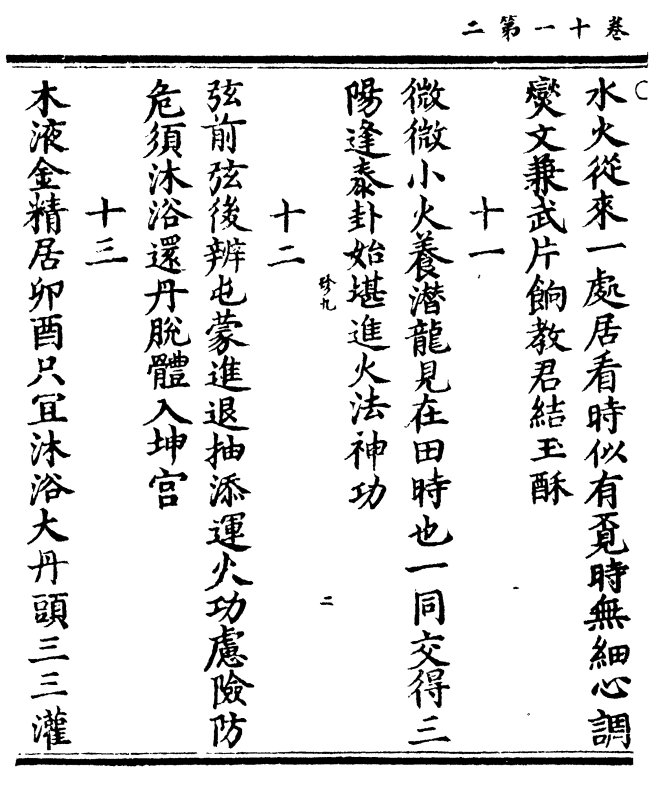 二第一十卷
水火從來一處居看時似有覓時無細心調
爕文兼武片餉教君結玉酥
十一
微微小火養潛龍見在田時也一同交得三
陽逢泰卦始堪進火法神功
珍九
二
十二
弦前弦後辨屯蒙進退抽添運火功慮險防
危須沐浴還丹脫體入坤宫
十三
木液金精居卯酉只冝沐浴大丹頭三三灌